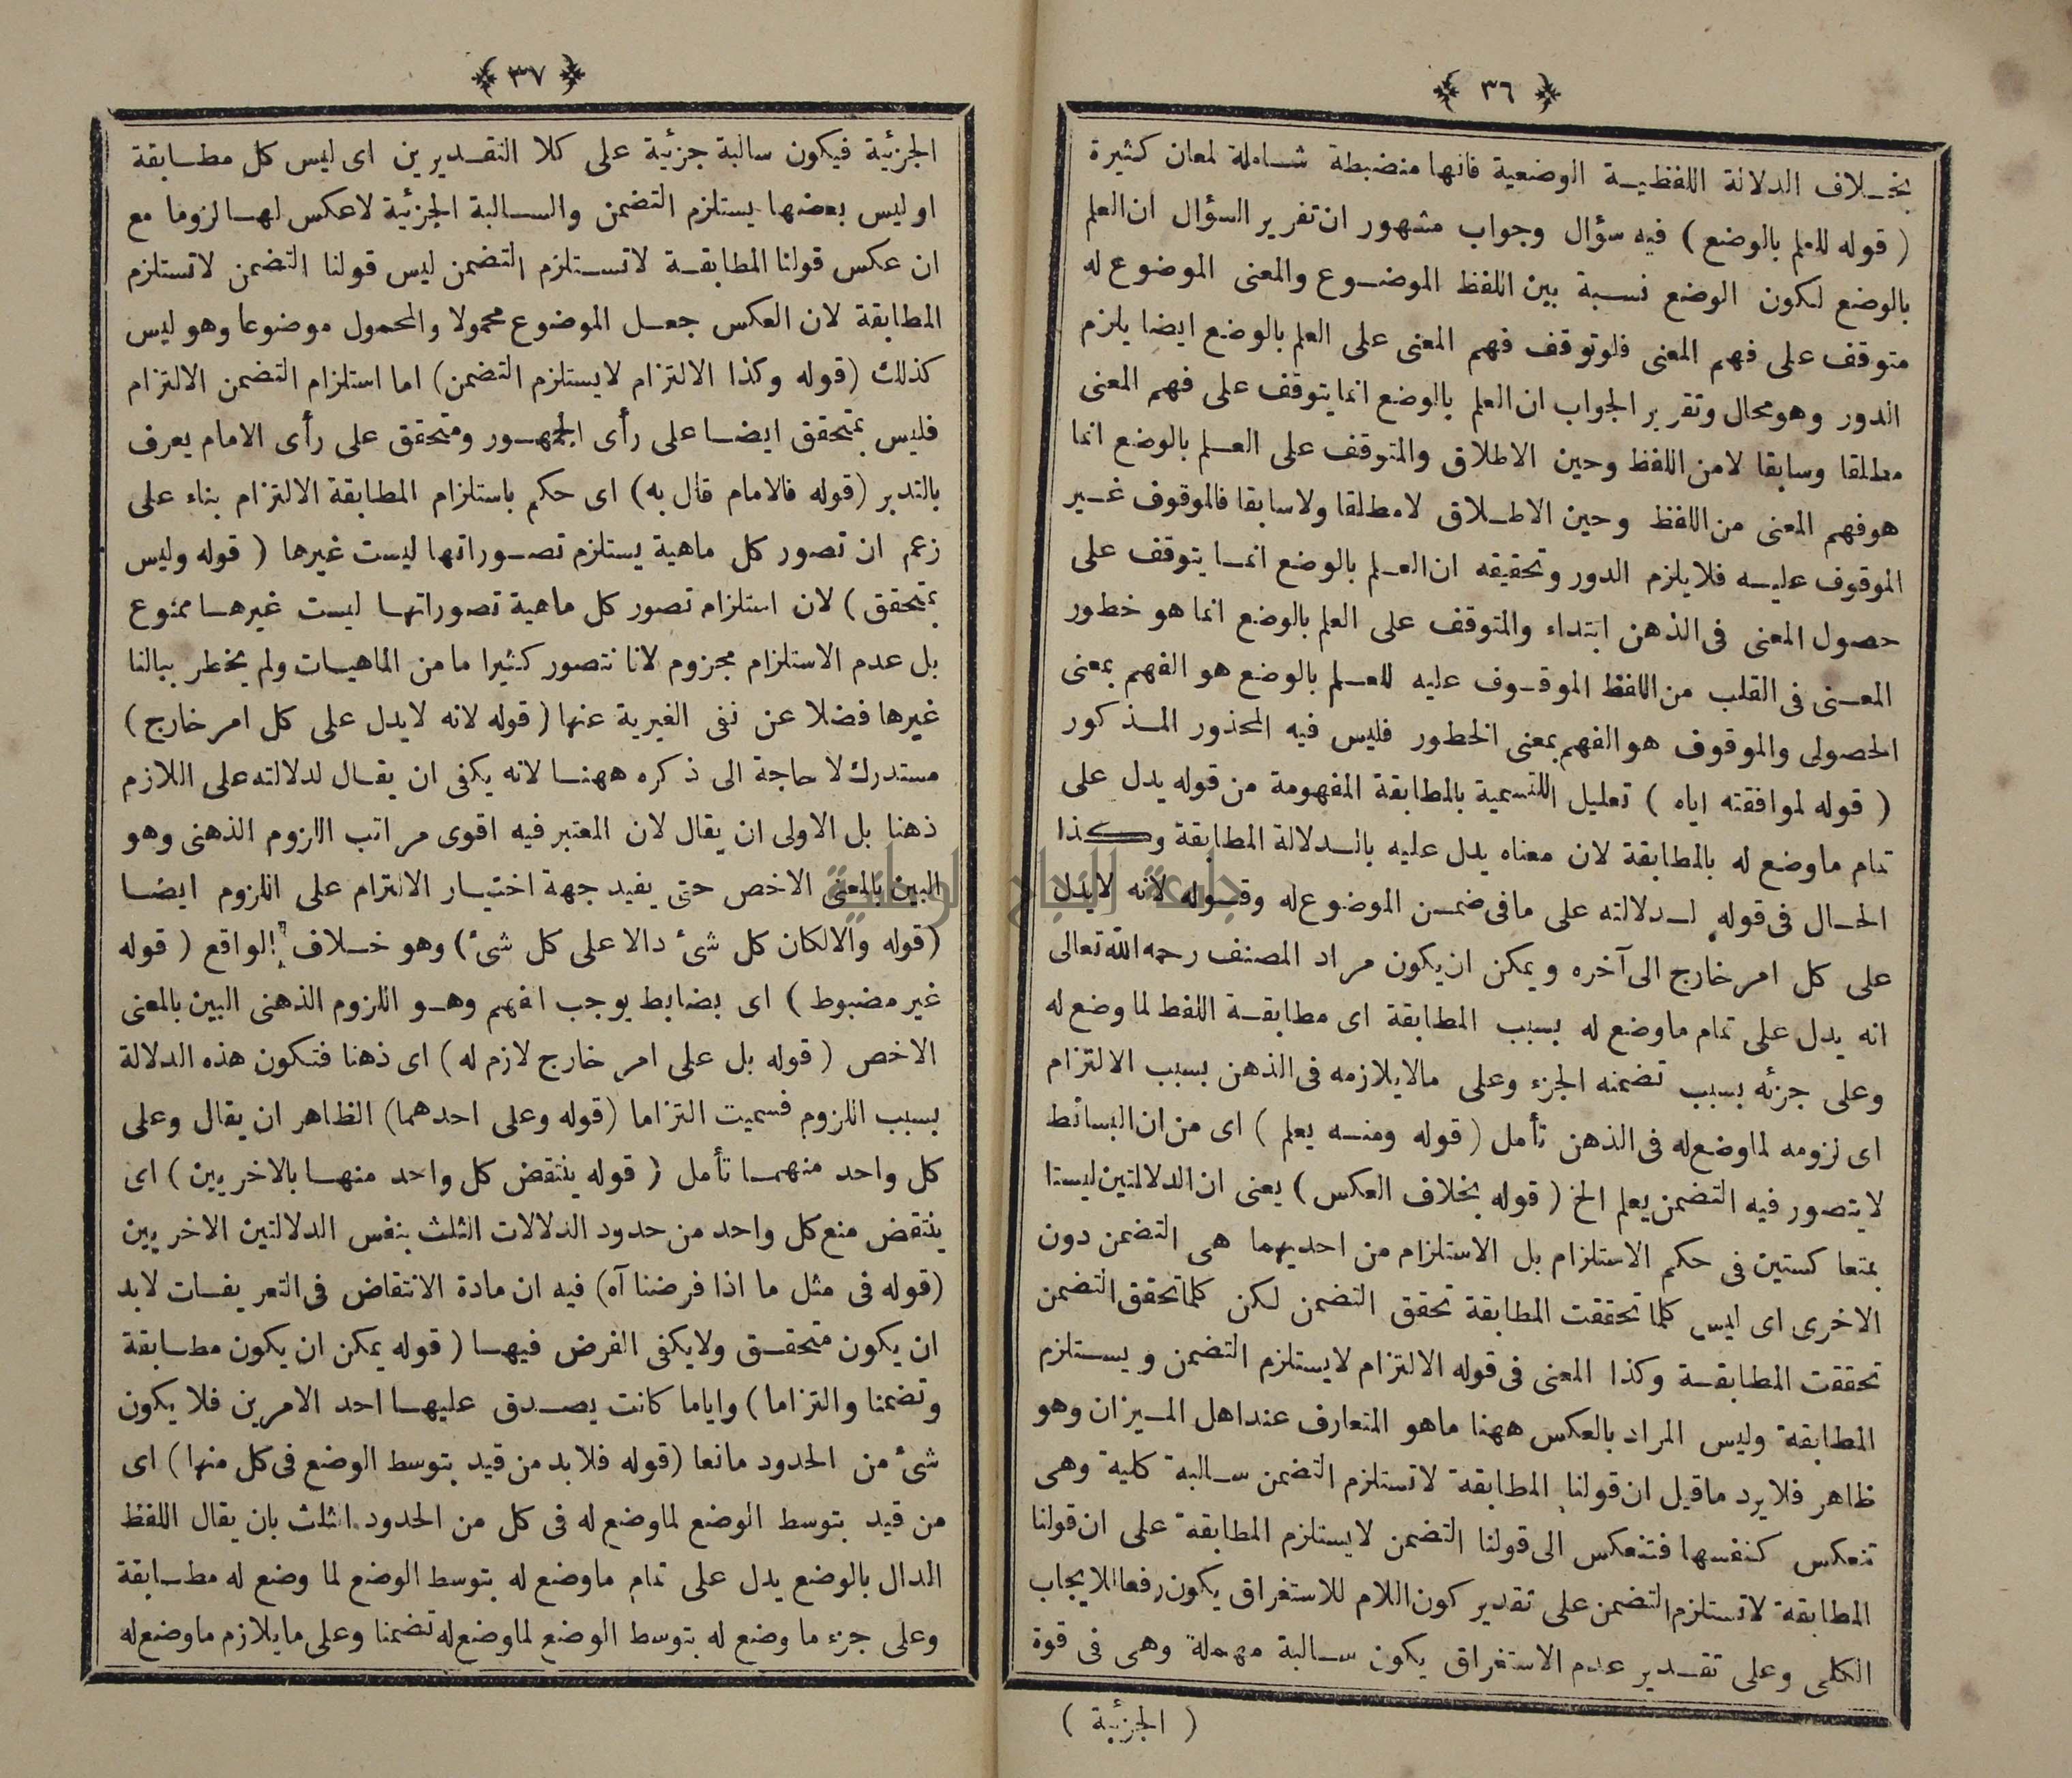 ﴿ ٣٦ ﴾
بخلاف الدلالة اللفظية الوضعية فانها منضبطة شاملة لمعان كثيرة
( قوله للعلم بالوضع ) فيه سؤال وجواب مشهور ان تقرير السؤال ان العلم
بالوضع لكون الوضع نسبة بين اللفظ الموضوع والمعنى الموضوع له
متوقف على فهم المعنى فلو توقف فهم المعنى على العلم بالوضع ايضا يلزم
الدور وهو محال وتقرير الجواب ان العلم بالوضع انما يتوقف على فهم المعنى
مطلقا وسابقا لا من اللفظ وحين الاطلاق والمتوقف على العلم بالوضع انما
هو فهم المعنى من اللفظ وحين الاطلاق لا مطلقا ولا سابقا فالموقوف غير
الموقوف عليه فلا يلزم الدور وتحقيقه ان العلم بالوضع انما يتوقف على
حصول المعنى فى الذهن ابتداء والمتوقف على العلم بالوضع انما هو خطور
المعنى فى القلب من اللفظ الموقوف عليه للعلم بالوضع هو الفهم بمعنى
الحصولى والموقوف هو الفهم بمعنى الخطور فليس فيه المحذور المذكور
( قوله لموافقته اياه ) تعليل اللتسمية بالمطابقة المفهومة من قوله يدل على
تمام ماوضع له بالمطابقة لان معناه يدل عليه بالدلالة المطابقة وكذا
الحال فى قوله لدلالته على مافى ضمن الموضوع له وقوله لانه لايدل
على كل امر خارج الى آخره ويمكن ان يكون مراد المصنف رحمه الله تعالى
انه يدل على تمام ماوضع له بسبب المطابقة اى مطابقة اللفظ لما وضع له
وعلى جزئه بسبب تضمنه الجزء وعلى مالايلازمه فى الذهن بسبب الالتزام
اى لزومه لماوضع له فى الذهن تأمل ( قوله ومنه يعلم ) اى من ان البسائط
لايتصور فيه التضمن يعلم الخ ( قوله بخلاف العكس ) يعنى ان الدلالتين ليستا
بمتعاكستين فى حكم الاستلزام بل الاستلزام من احديهما هى التضمن دون
الاخرى اى ليس كلما تحققت المطابقة تحقق التضمن لكن كلما تحقق التضمن
تحققت المطابقة وكذا المعنى فى قوله الالتزام لايستلزم التضمن ويستلزم
المطابقة وليس المراد بالعكس ههنا ماهو المتعارف عند اهل الميزان وهو
ظاهر فلايرد ماقيل ان قولنا المطابقة لاتستلزم التضمن سالبة كلية وهى
تنعكس كنفسها فتنعكس الى قولنا التضمن لايستلزم المطابقة على ان قولنا
المطابقة لاتستلزم التضمن على تقدير كون اللام للاستغراق يكون رفعا للايجاب
الكلى وعلى تقدير عدم الاستغراق يكون سالبة مهملة وهى فى قوة
( الجزئية )
﴿ ٣٧ ﴾
الجزئية فيكون سالبة جزئية على كلا التقديرين اى ليس كل مطابقة
اوليس بعضها يستلزم التضمن والسالبة الجزئية لاعكس لها لزوما مع
ان عكس قولنا المطابقة لاتستلزم التضمن ليس قولنا التضمن لاتستلزم
المطابقة لان العكس جعل الموضوع محمولا والمحمول موضوعا وهو ليس
كذلك (قوله وكذا الالتزام لايستلزم التضمن) اما استلزام التضمن الالتزام
فليس بمتحقق ايضا على رأى الجمهور ومتحقق على رأى الامام يعرف
بالتدبر (قوله فالامام قال به) اى حكم باستلزام المطابقة الالتزام بناء على
زعم ان تصور كل ماهية يستلزم تصوراتها ليست غيرها ( قوله وليس
بمتحقق ) لان استلزام تصور كل ماهية تصوراتها ليست غيرها ممنوع
بل عدم الاستلزام مجزوم لانا نتصور كثيرا ما من الماهيات ولم يخطر ببالنا
غيرها فضلا عن نفى الغيرية عنها ( قوله لانه لايدل على كل امر خارج )
مستدرك لا حاجة الى ذكره ههنا لانه يكفى ان يقال لدلالته على اللازم
ذهنا بل الاولى ان يقال لان المعتبر فيه اقوى مراتب اللزوم الذهنى وهو
البين بالمعنى الاخص حتى يفيد جهة اختيار الالتزام على اللزوم ايضا
(قوله والالكان كل شئ دالا على كل شئ) وهو خلاف الواقع ( قوله
غير مضبوط ) اى بضابط يوجب الفهم وهو اللزوم الذهنى البين بالمعنى
الاخص ( قوله بل على امر خارج لازم له ) اى ذهنا فتكون هذه الدلالة
بسبب اللزوم فسميت التزاما (قوله وعلى احدهما) الظاهر ان يقال وعلى
كل واحد منهما تأمل ( قوله ينتقض كل واحد منها بالاخريين ) اى
ينتقض منع كل واحد من حدود الدلالات الثلث بنفس الدلالتين الاخريين
(قوله فى مثل ما اذا فرضنا آه) فيه ان مادة الانتقاض فى التعريفات لابد
ان يكون متحقق ولايكفى الفرض فيها ( قوله يمكن ان يكون مطابقة
وتضمنا والتزاما ) واياما كانت يصدق عليها احد الامرين فلا يكون
شئ من الحدود مانعا (قوله فلابد من قيد بتوسط الوضع فى كل منها) اى
من قيد بتوسط الوضع لماوضع له فى كل من الحدود الثلث بان يقال اللفظ
الدال بالوضع يدل على تمام ماوضع له بتوسط الوضع لما وضع له مطابقة
وعلى جزء ما وضع له بتوسط الوضع لماوضع له تضمنا وعلى مايلازم ماوضع له